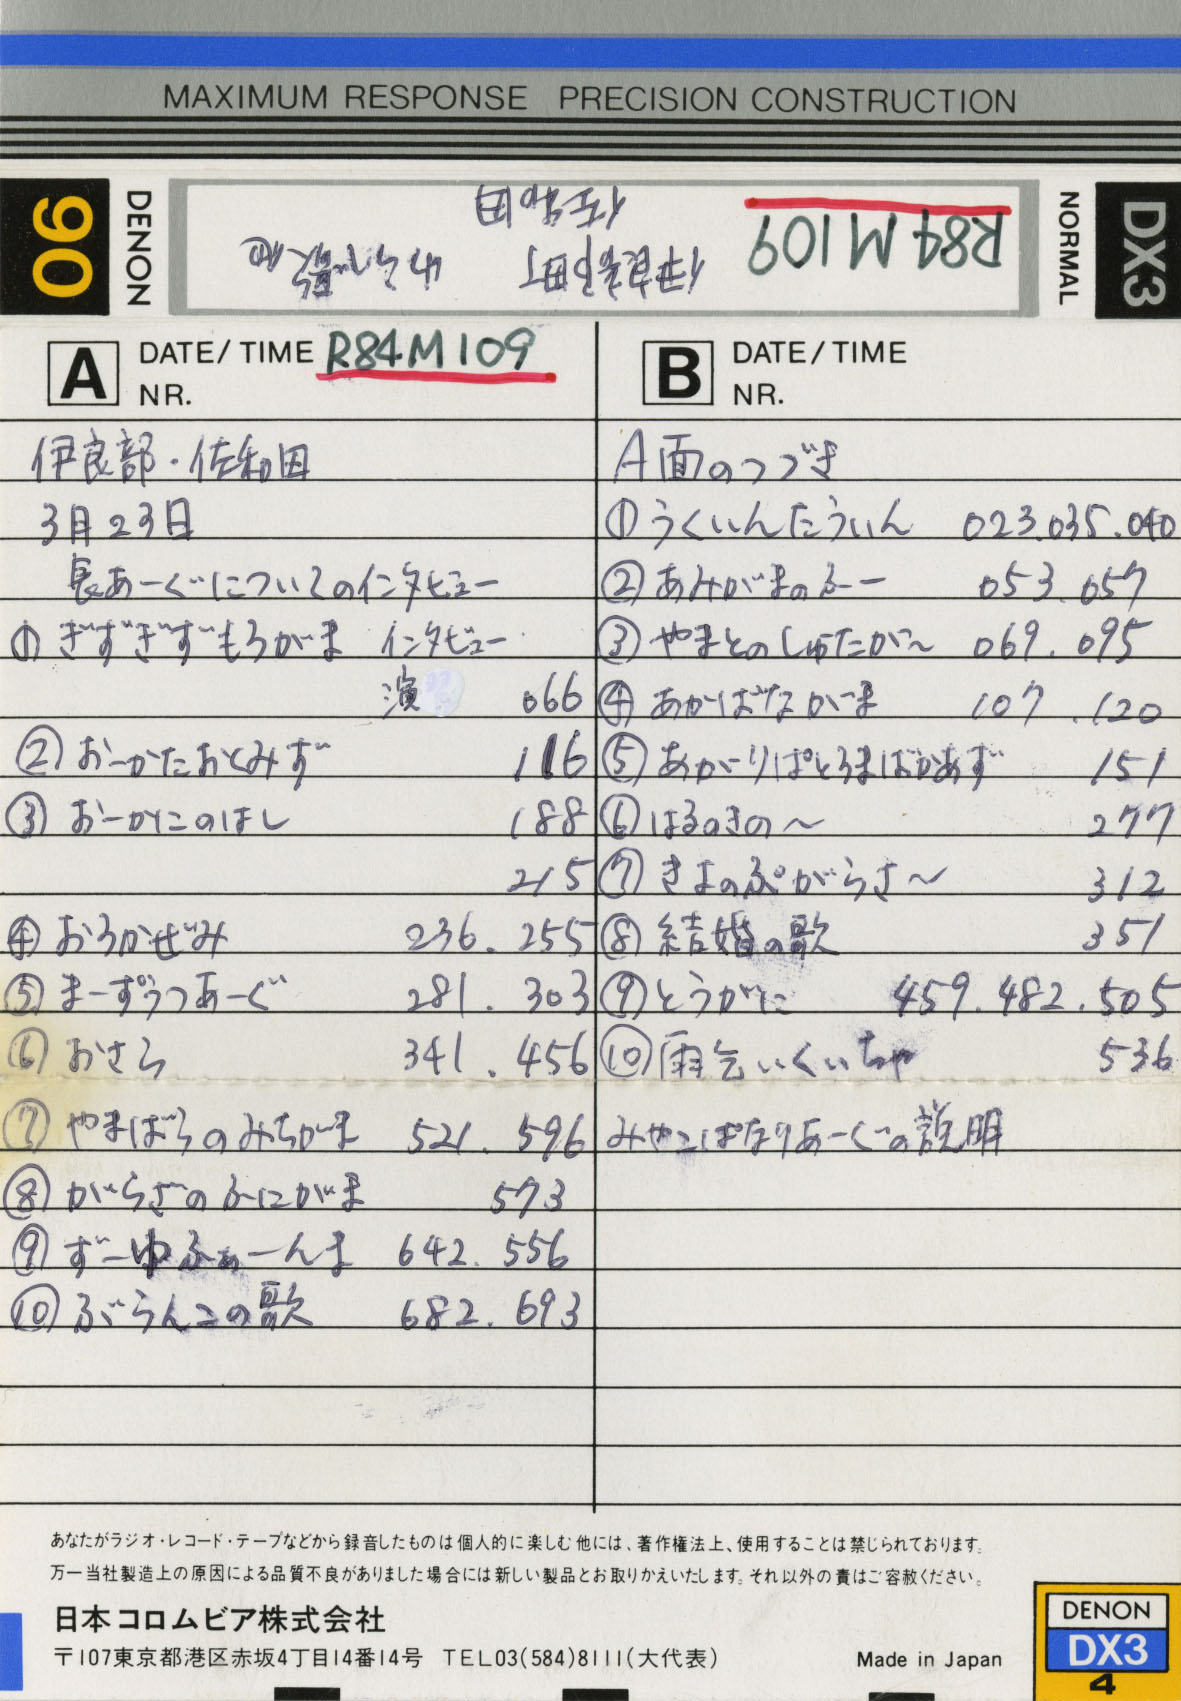 MAXIMUM RESPONSE PRECISION CONSTRUCTION
90
DENON
R84M109
伊良部町 わらべ歌他
佐和田
NORMAL
DX3
A DATE/TIME R84M109
NR.
伊良部・佐和田
3月23日
長あーぐについてのインタビュー
① ぎずぎずもろがま インタビュー
演 066
② おーかたおとみず 116
③ おーかにのはし 188
215
④ おろかぜみ 236.255
⑤ まーずうつあーぐ 281.303
⑥ おさら 341.456
⑦ やまばらのみちがま 521.596
⑧ がらざのふにがま 573
⑨ ずーゆふぁーんま 642.556
⑩ ぶらんこの歌 682.693
B DATE/TIME
NR.
A面のつづき
① うくいんたういん 023.035.040
② あみがまのふー 053.057
③ やまとのしゅたが〜 069.095
④ あかばながま 107.120
⑤ あがりぱとろまばかあず 151
⑥ はるのきの〜 277
⑦ きよのぷがらさ〜 312
⑧ 結婚の歌 351
⑨ とうがに 459.482.505
⑩ 雨乞いくいちゃ 536
みやこぱなりあーぐの説明
あなたがラジオ・レコード・テープなどから録音したものは個人的に楽しむ他には、著作権法上、使用することは禁じられております。
万一当社製造上の原因による品質不良がありました場合には新しい製品とお取りかえいたします。それ以外の責はご容赦ください。
日本コロムビア株式会社
〒107東京都港区赤坂4丁目14番14号 TEL03(584)8111(大代表)
Made in Japan
DENON
DX3
4